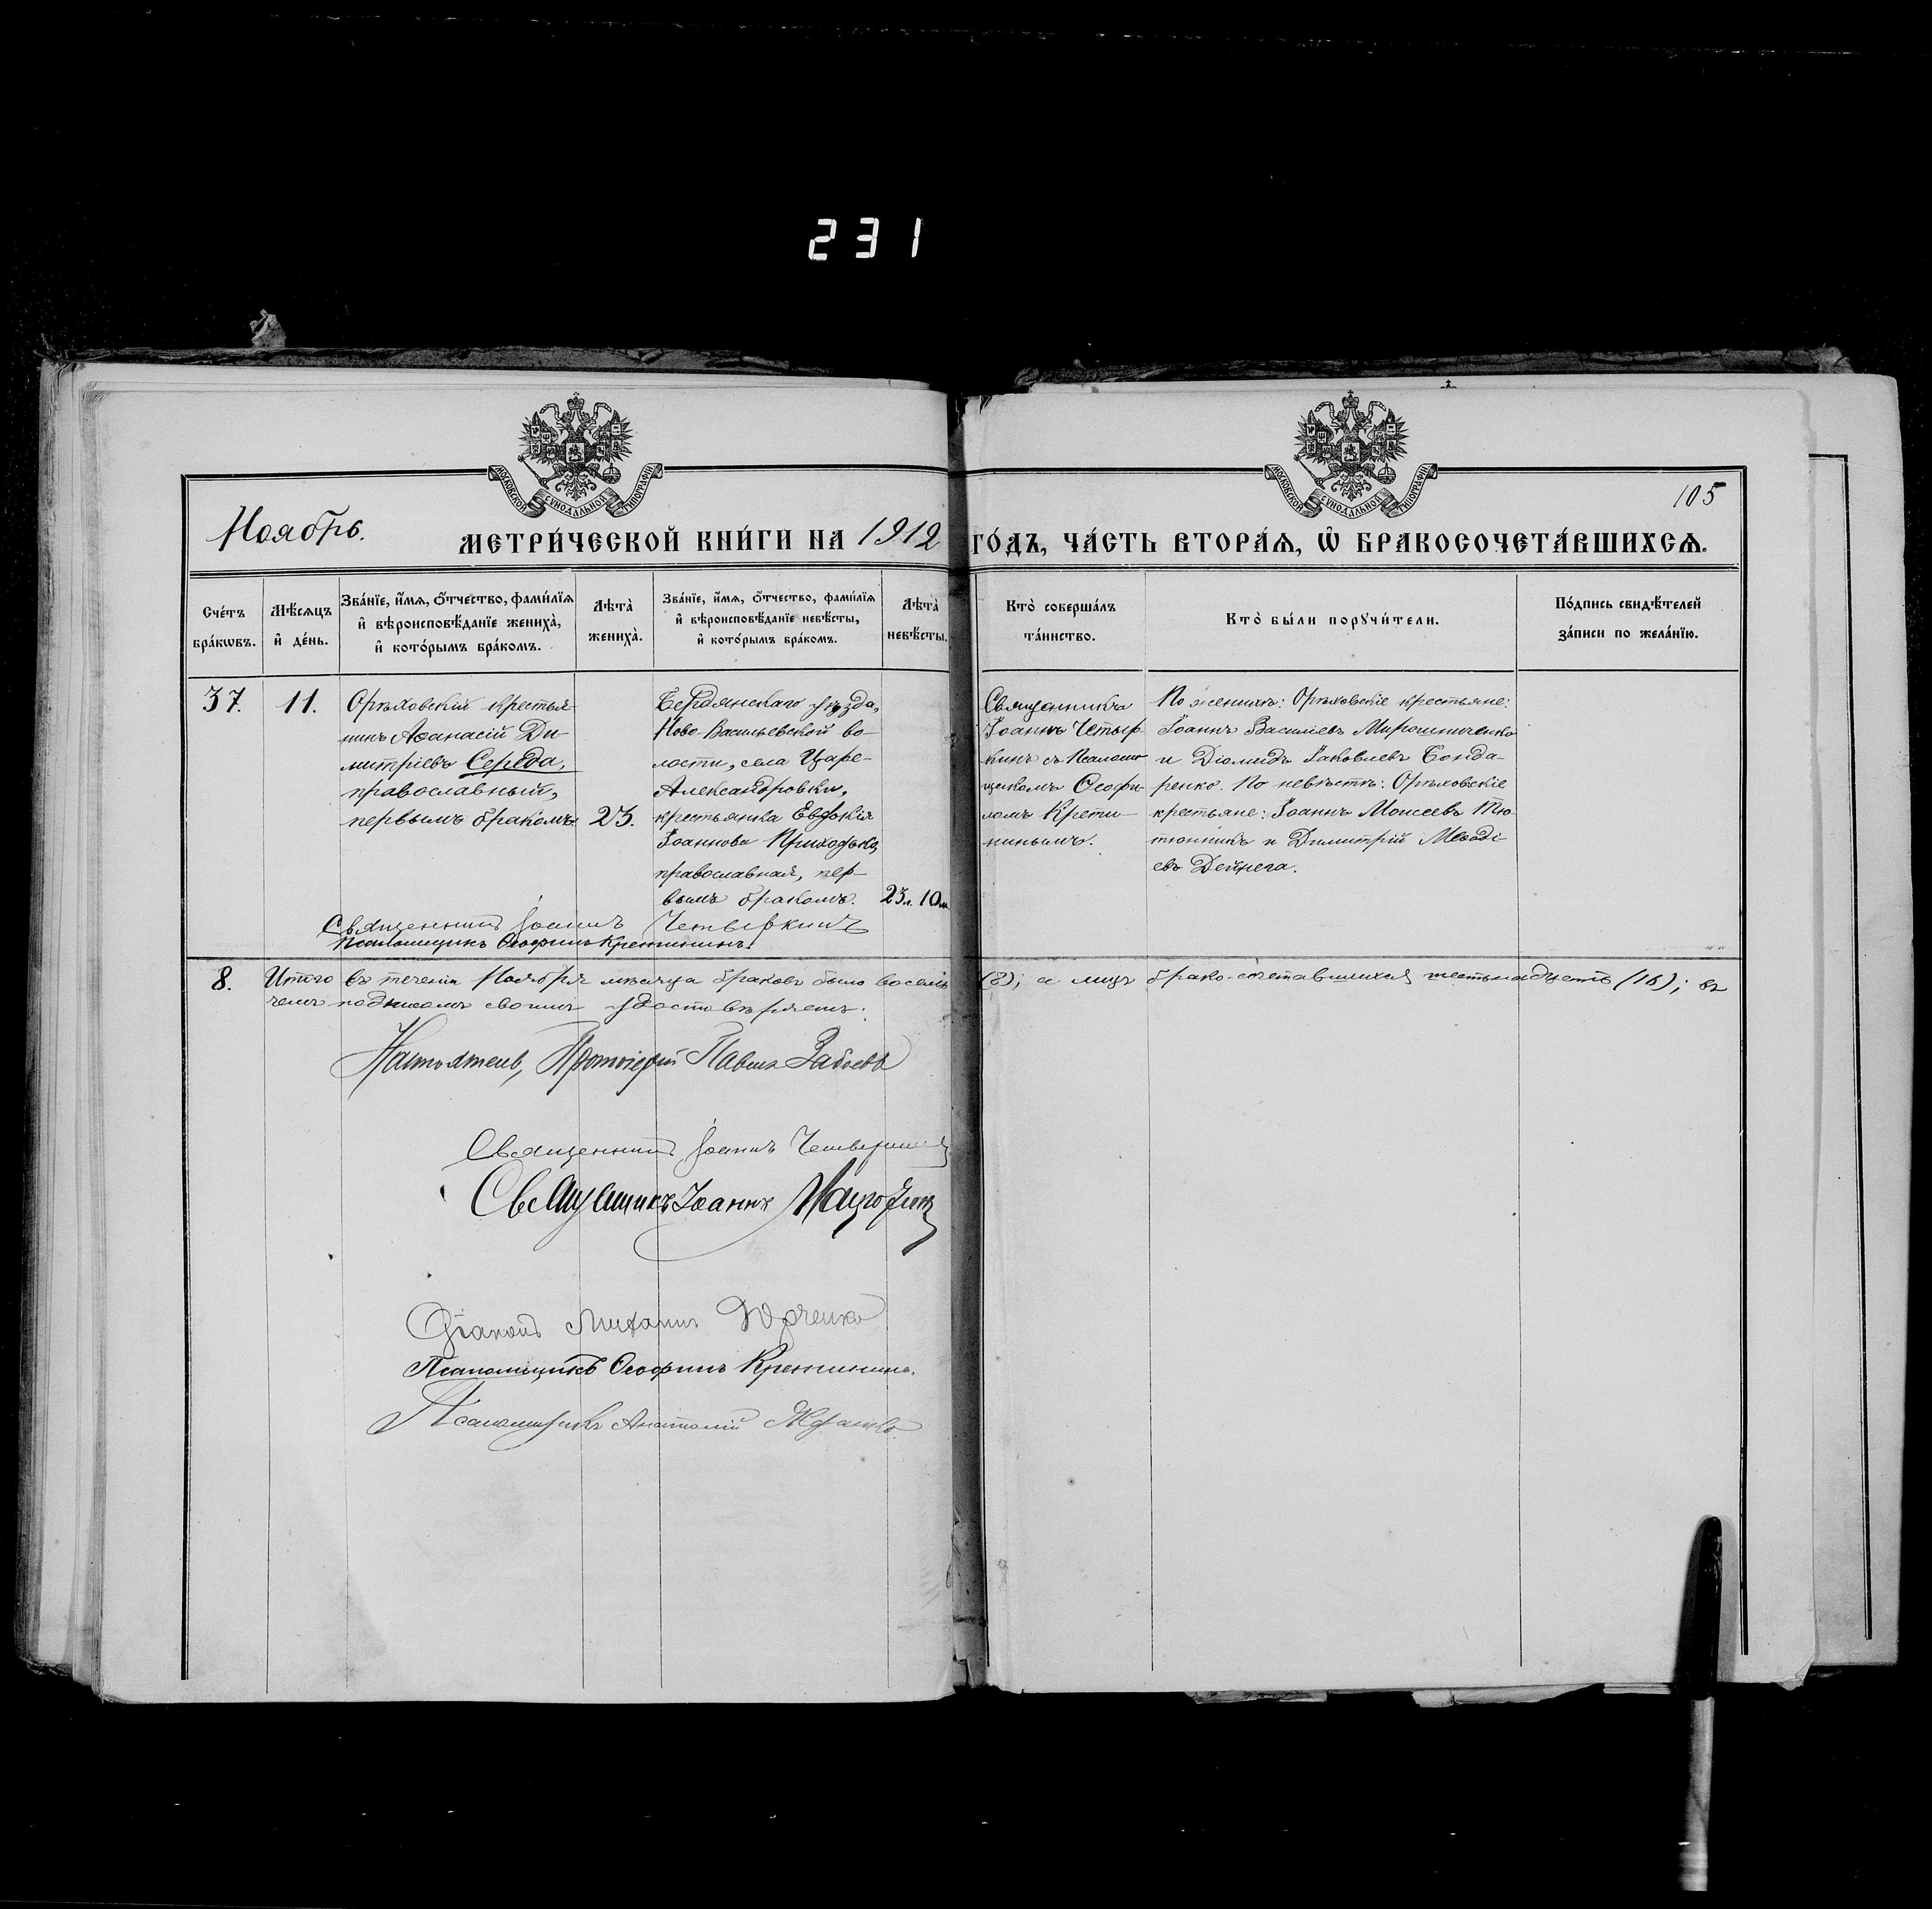 231
МОСКОВСКОЙ СѴНОДАЛЬНОЙ ТИПОГРАФІИ
МОСКОВСКОЙ СѴНОДАЛЬНОЙ ТИПОГРАФІИ
105
Ноябрь.
МЕТРИ́ЧЕСКОЙ КНИ́ГИ НА 1912 ГО́ДЪ, ЧА́СТЬ ВТОРА́Ѧ, Ѡ҆ БРАКОСОЧЕТА́ВШИХСѦ.
Сче́тъ бра́кѡвъ.
Мѣ́сѧцъ и҆ де́нь.
Зва́нїе, и҆́мѧ, ѻ҆́тчество, фами́лїѧ
и҆ вѣроисповѣ́данїе жениха̀,
и҆ кото́рымъ бра́комъ.
Лѣта̀ жениха̀.
Зва́нїе, и҆́мѧ, ѻ҆́тчество, фами́лїѧ
и҆ вѣроисповѣ́данїе невѣ́сты,
и҆ кото́рымъ бра́комъ.
Лѣта̀ невѣ́сты.
Кто̀ соверша́лъ
та́инство.
Кто̀ бы́ли порꙋчи́тели.
По́дпись свидѣ́телей
за́писи по жела́нїю.
37.
11.
Орѣховскій крестья-
нинъ Аѳанасій Ди-
митріевъ Середа,
православный,
первымъ бракомъ
23.
Бердянскаго уѣзда,
Ново-Васильевской во-
лости, села Царе-
Александровки,
крестьянка Евдокія
Іоаннова Приходько,
православная, пер-
вымъ бракомъ.
23 л. 10 м.
Священникъ
Іоаннъ Четыр-
кинъ съ Псалом-
щикомъ Ѳеофи-
ломъ Крети-
нинымъ.
По женихѣ: Орѣховскіе крестьяне:
Іоаннъ Васильевъ Мирошниченко
и Діомидъ Іаковлевъ Бонда-
ренко. По невѣстѣ: Орѣховскіе
крестьяне: Іоаннъ Моисеевъ Тю-
тюнникъ и Димитрій Меѳоді-
евъ Дейнега.
Священникъ Іоаннъ Четыркинъ
Псаломщикъ Ѳеофилъ Кретининъ.
8. Итого въ теченіи Ноября мѣсяца браковъ было восемь (8); а лицъ брако-сочетавшихся шестьнадцать (16); въ
чемъ подписомъ своимъ удостовѣряемъ:
Настоятель, Протоіерей Павелъ
Священникъ Іоаннъ Четыркинъ
Священникъ Іоаннъ
Діаконъ Михаилъ Юрченко
Псаломщикъ Ѳеофилъ Кретининъ.
Псаломщикъ Анатолій